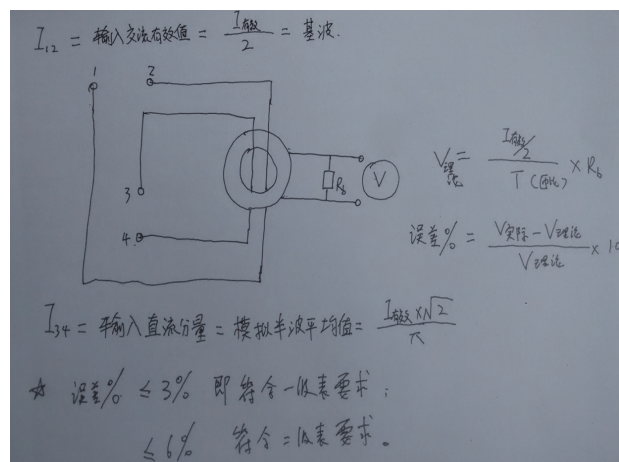 I₁₂ = 输入交流有效值 = I有效/2 = 基波.
1 2
3
4
R₆ V
V理论 = I有效/2 / T(匝比) × R₆
误差% = V实际-V理论 / V理论 × 10
I₃₄ = 输入直流分量 = 模拟半波平均值 = I有效×√2 / π
☆ 误差% ≤ 3% 即符合一级表要求;
≤ 6% 符合二级表要求。